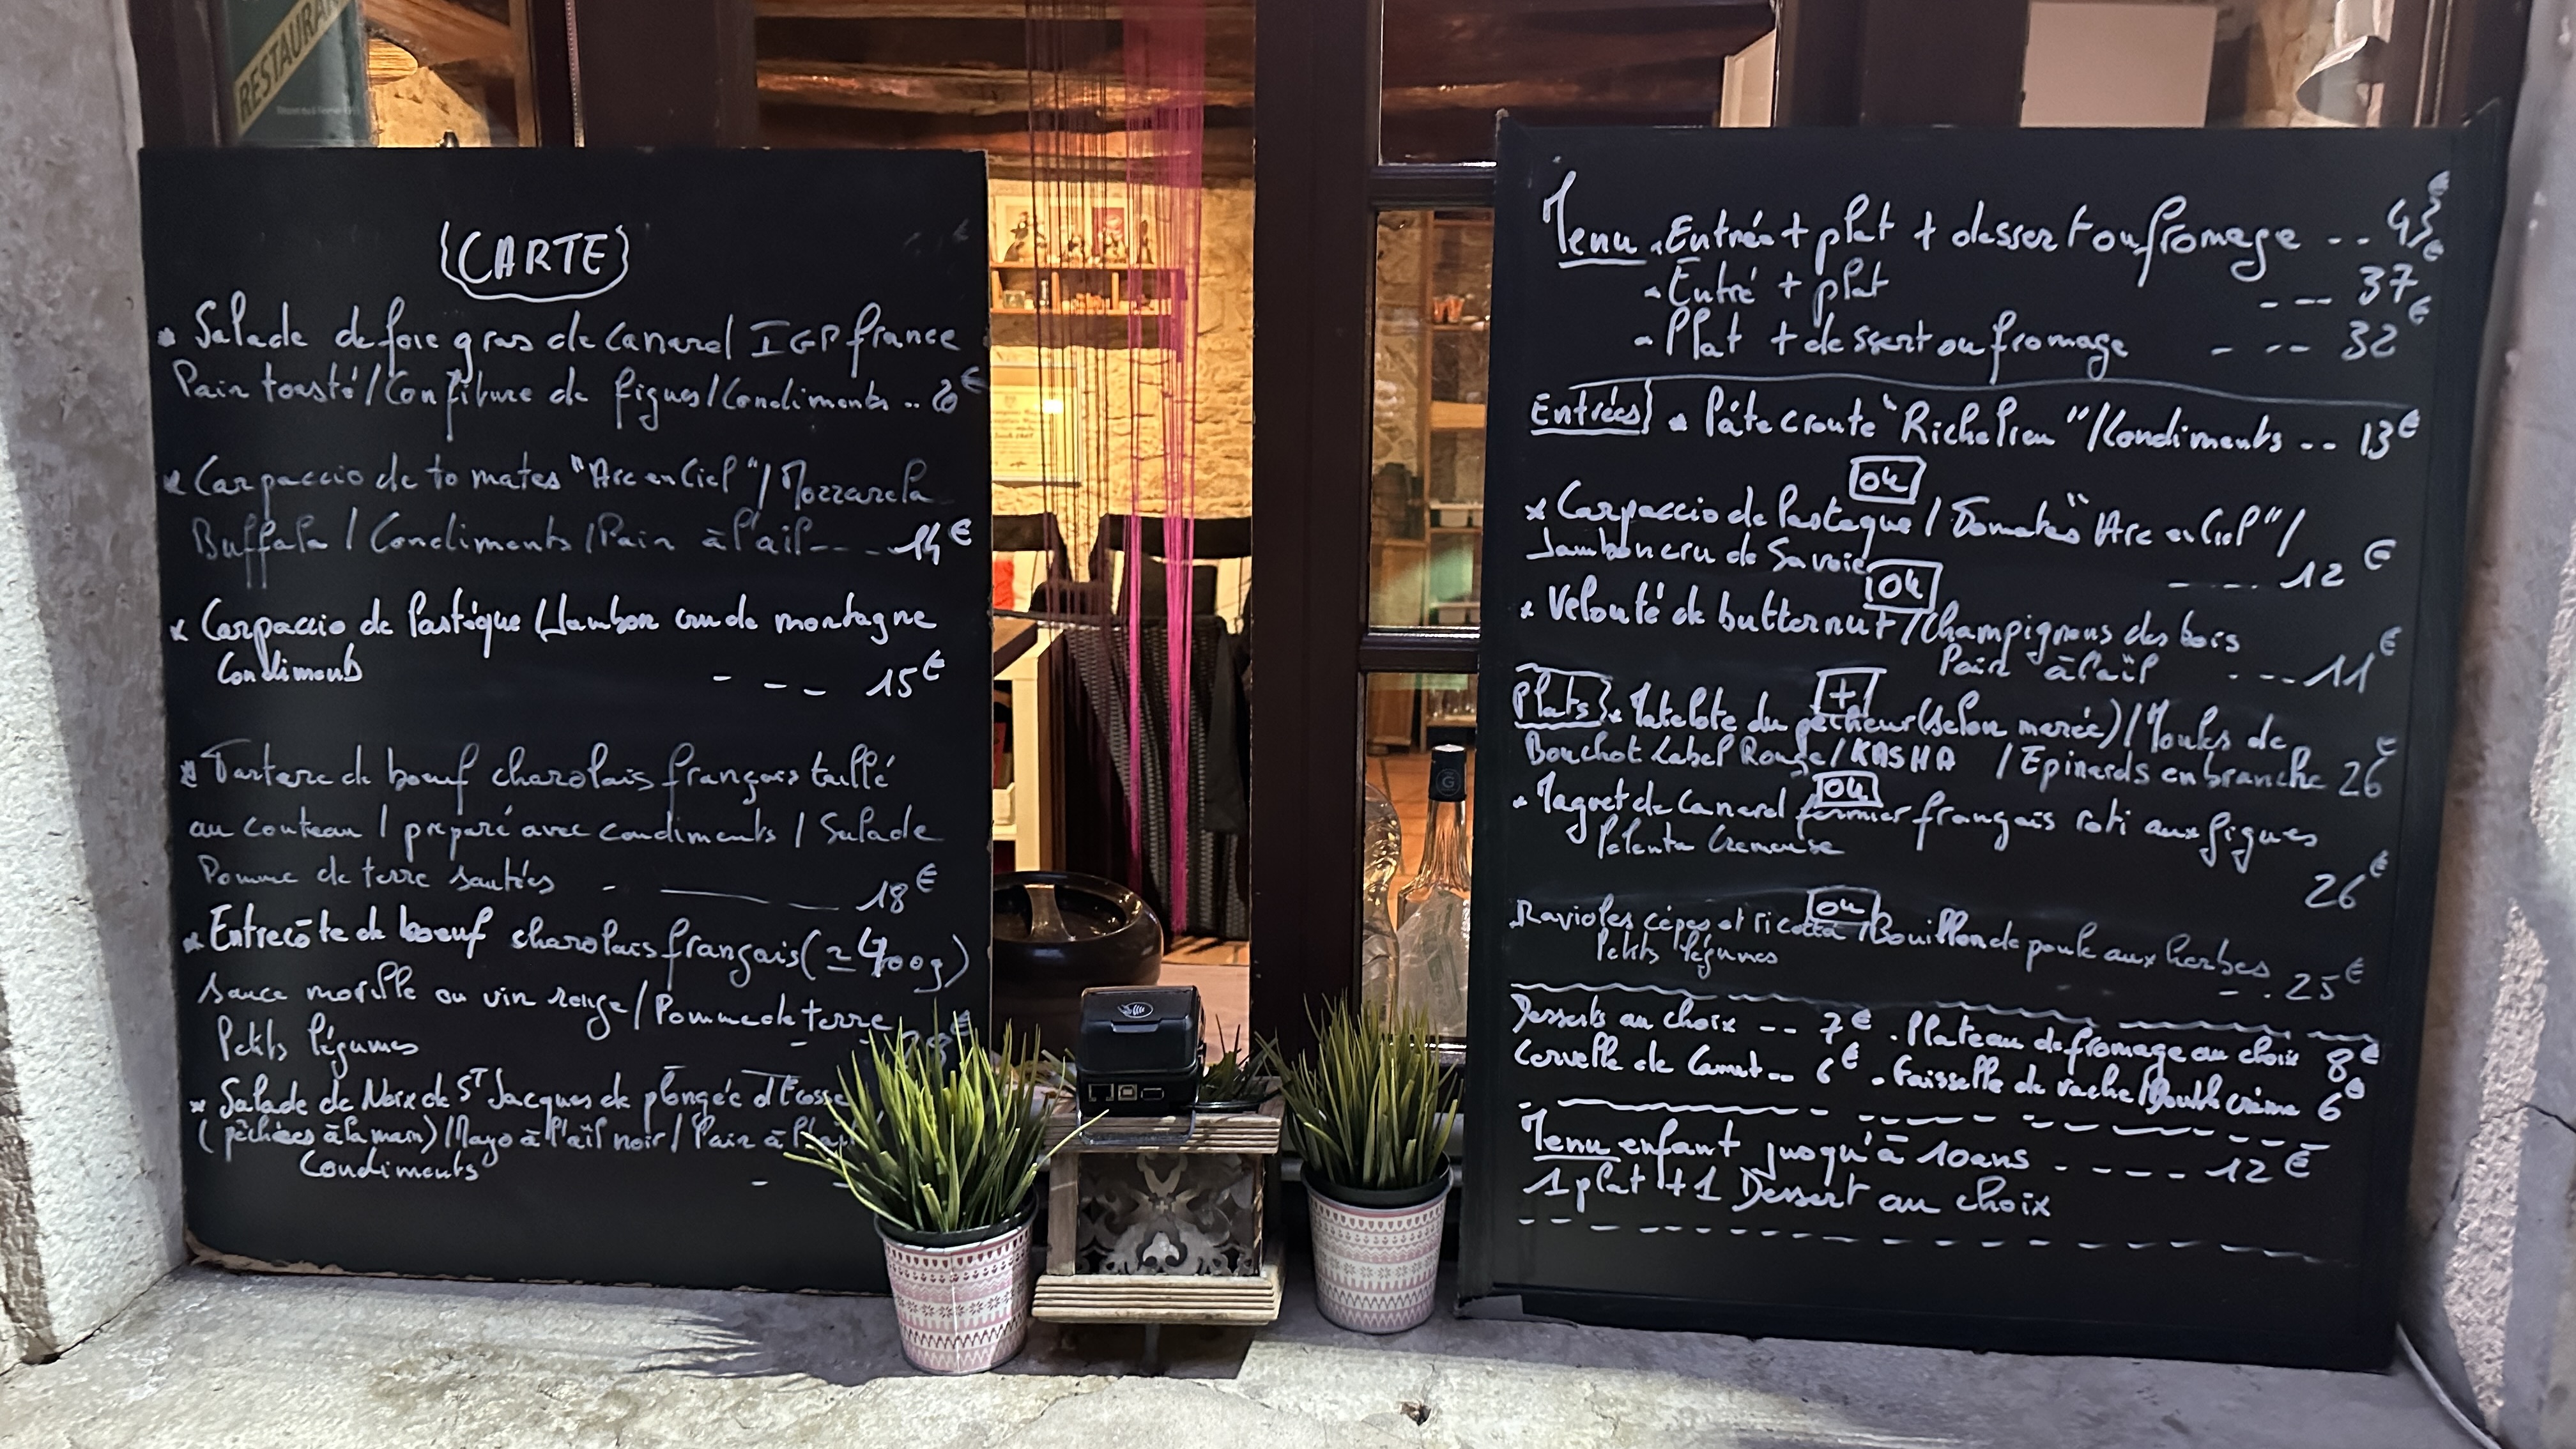 RESTAURAN
{CARTE}
* Salade de foie gras de Canard IGP france
Pain toasté / Confiture de figues / Condiments .. 20€
* Carpaccio de tomates "Arc en Ciel" / Mozzarela
Buffala / Condiments / Pain à l'ail - - - 14€
* Carpaccio de Pastèque / Jambon cru de montagne
Condiments - - - 15€
* Tartare de boeuf charolais français taillé
au couteau / preparé avec condiments / Salade
Pomme de terre sautées - 18€
* Entrecôte de boeuf charolais français (≃400g)
sauce morille ou vin rouge / Pomme de terre
Petits légumes
* Salade de Noix de ST Jacques de plongée d'Ecosse
(pêchées à la main) / Mayo à l'ail noir / Pain à l'ail
Condiments
Menu - Entrée + plat + dessert ou fromage - - 43€
- Entré + plat - - - 37€
- Plat + dessert ou fromage - - - 32€
Entrées * Pâte croute "Richelieu" / Condiments - - 13€
OK
* Carpaccio de Pasteque / Tomates "Arc en Ciel" /
Jambon cru de Savoie - - - - 12€
OK
* Velouté de butternut / Champignons des bois
Pain à l'ail - - - - 11€
+
Plats * Matelote du pêcheur (selon marée) / Moules de
Bouchot Label Rouge / KASHA / Epinards en branche 26€
OK
* Magret de Canard fermier français roti aux figues
Polenta Cremeuse
26€
OK
Ravioles cèpes et ricotta / Bouillon de poule aux herbes
Petits légumes - - 25€
Desserts au choix - - 7€ . Plateau de fromage au choix 8€
Cervelle de Canut - - 6€ - Faisselle de vache / Double crème 6€
Menu enfant jusqu'à 10ans - - - - 12€
1 plat + 1 Dessert au choix